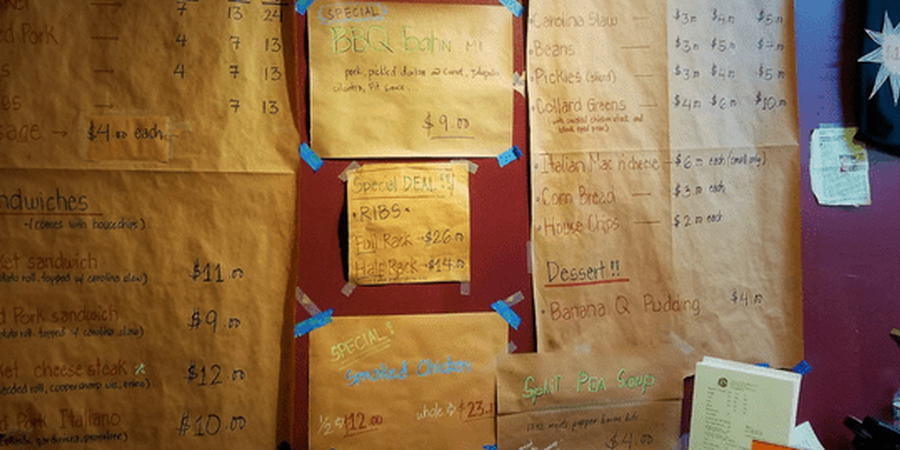 7 13 24
Pork 4 7 13
4 7 13
7 13
→ $4.00 each
-(comes with house chips)
sandwich $11.00
roll, topped w/ carolina slaw)
Pork sandwich $9.00
roll, topped w/ carolina slaw)
cheesesteak $12.00
roll, coopersharp wiz, onion)
Pork Italiano $10.00
SPECIAL
BBQ bahn mi
pork, pickled daikon & carrot, jalapeño
cilantro, pit sauce
$9.00
Special DEAL!!
• RIBS •
Full Rack → $26.00
Half Rack → $14.00
SPECIAL!
Smoked Chicken
1/2 $12.00 whole $23.
Carolina Slaw $3.00 $4.00 $5.00
• Beans — $3.00 $5.00
• Pickles $3.00 $4.00 $5.00
• Collard Greens $4.00 $6.00 $10.00
(with smoked chicken stock and
black eyed peas)
• Italian Mac n' cheese - $6.00 each (small only)
• Corn Bread — $3.00 each
• House Chips — $2.00 each
Dessert!!
• Banana Q Pudding $4.00
Split Pea Soup
$4.00